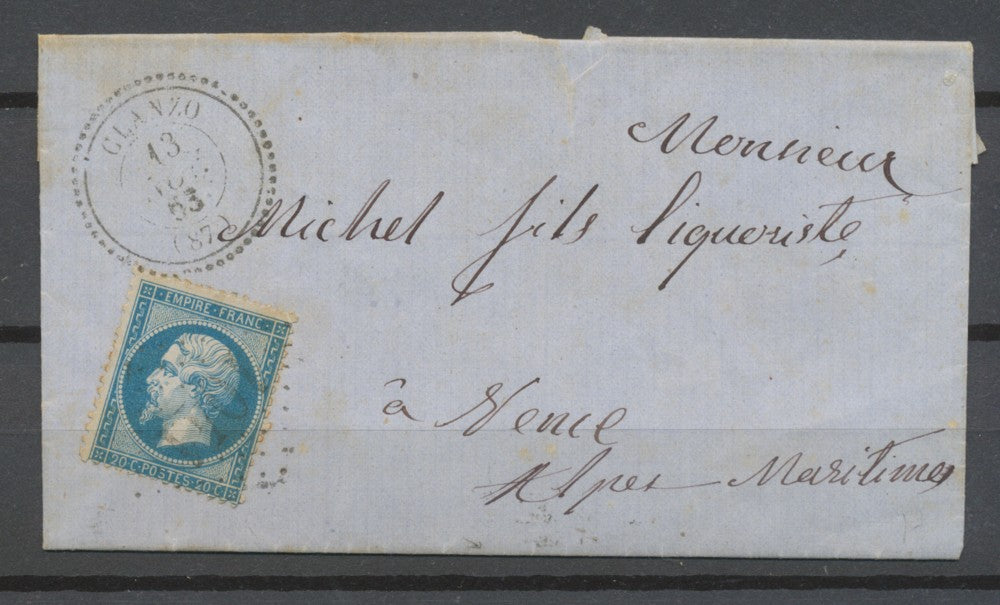 GLANZO
13
(87)
EMPIRE · FRANC ·
20 C · POSTES · 20 C
Monsieur
Michel fils liquoriste
à Vence
Alpes Maritimes